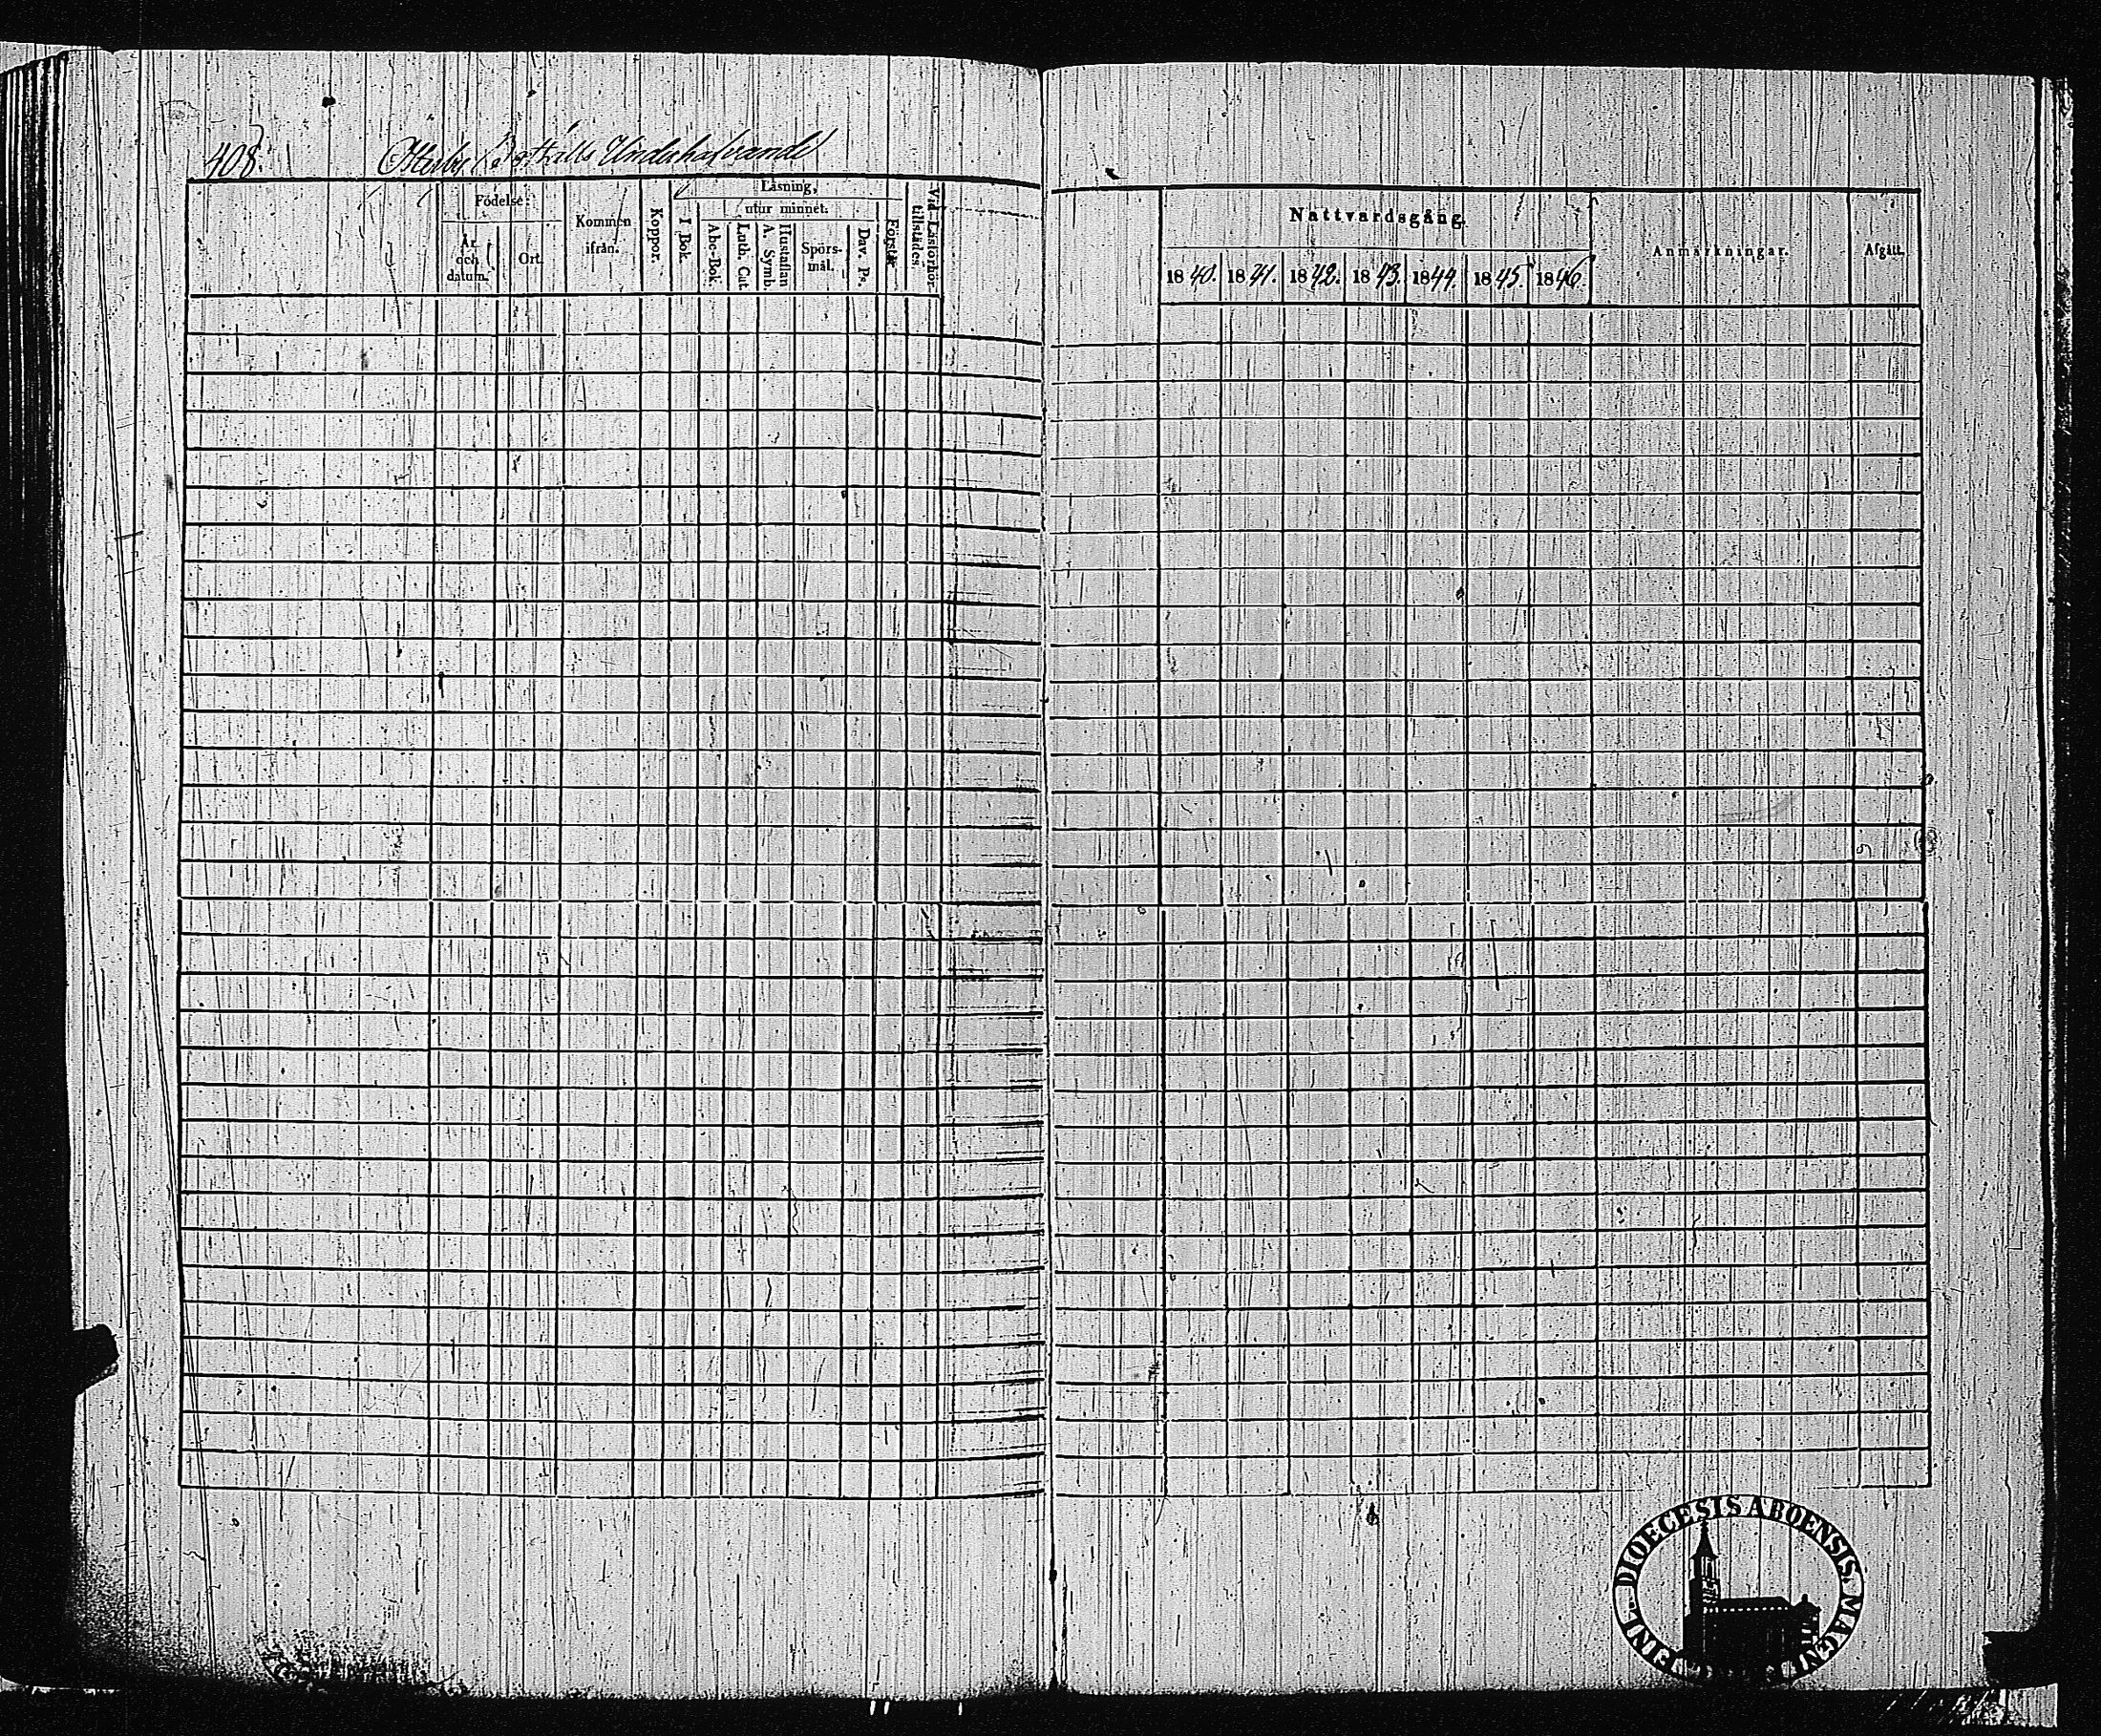 408.
Österby Underhafvande
Födelse-
År och datum.
Ort.
Kommen ifrån.
Koppor.
Läsning,
I Bok.
utur minnet.
Abc-Bok.
Luth. Cat.
Hustaflan A. Symb.
Spörs-mål.
Dav. Ps.
Förstår
Vid Läsförhör tillstädes.
Nattvardsgång.
1840. 1841. 1842. 1843. 1844. 1845. 1846.
Anmärkningar.
Afgått.
DIOECESIS ABOENSIS. MAGNI FINL.